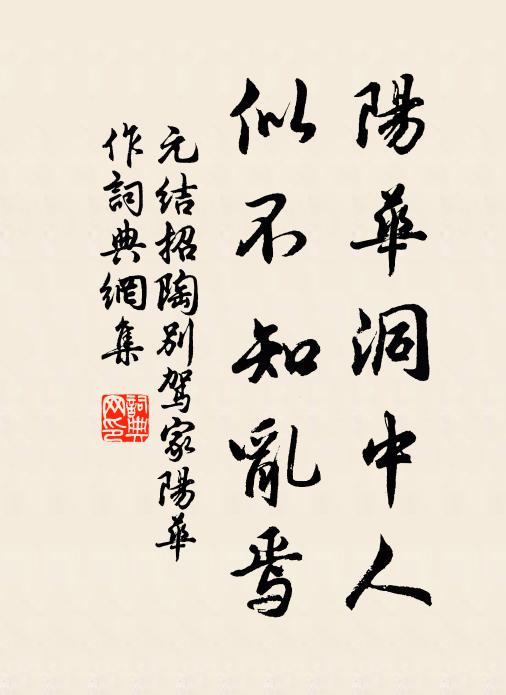 陽華洞中人
似不知亂焉
元結招陶別駕家陽華
作詞典網集
詞典網印